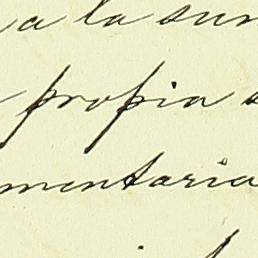 a la sun
propia s
mentaria